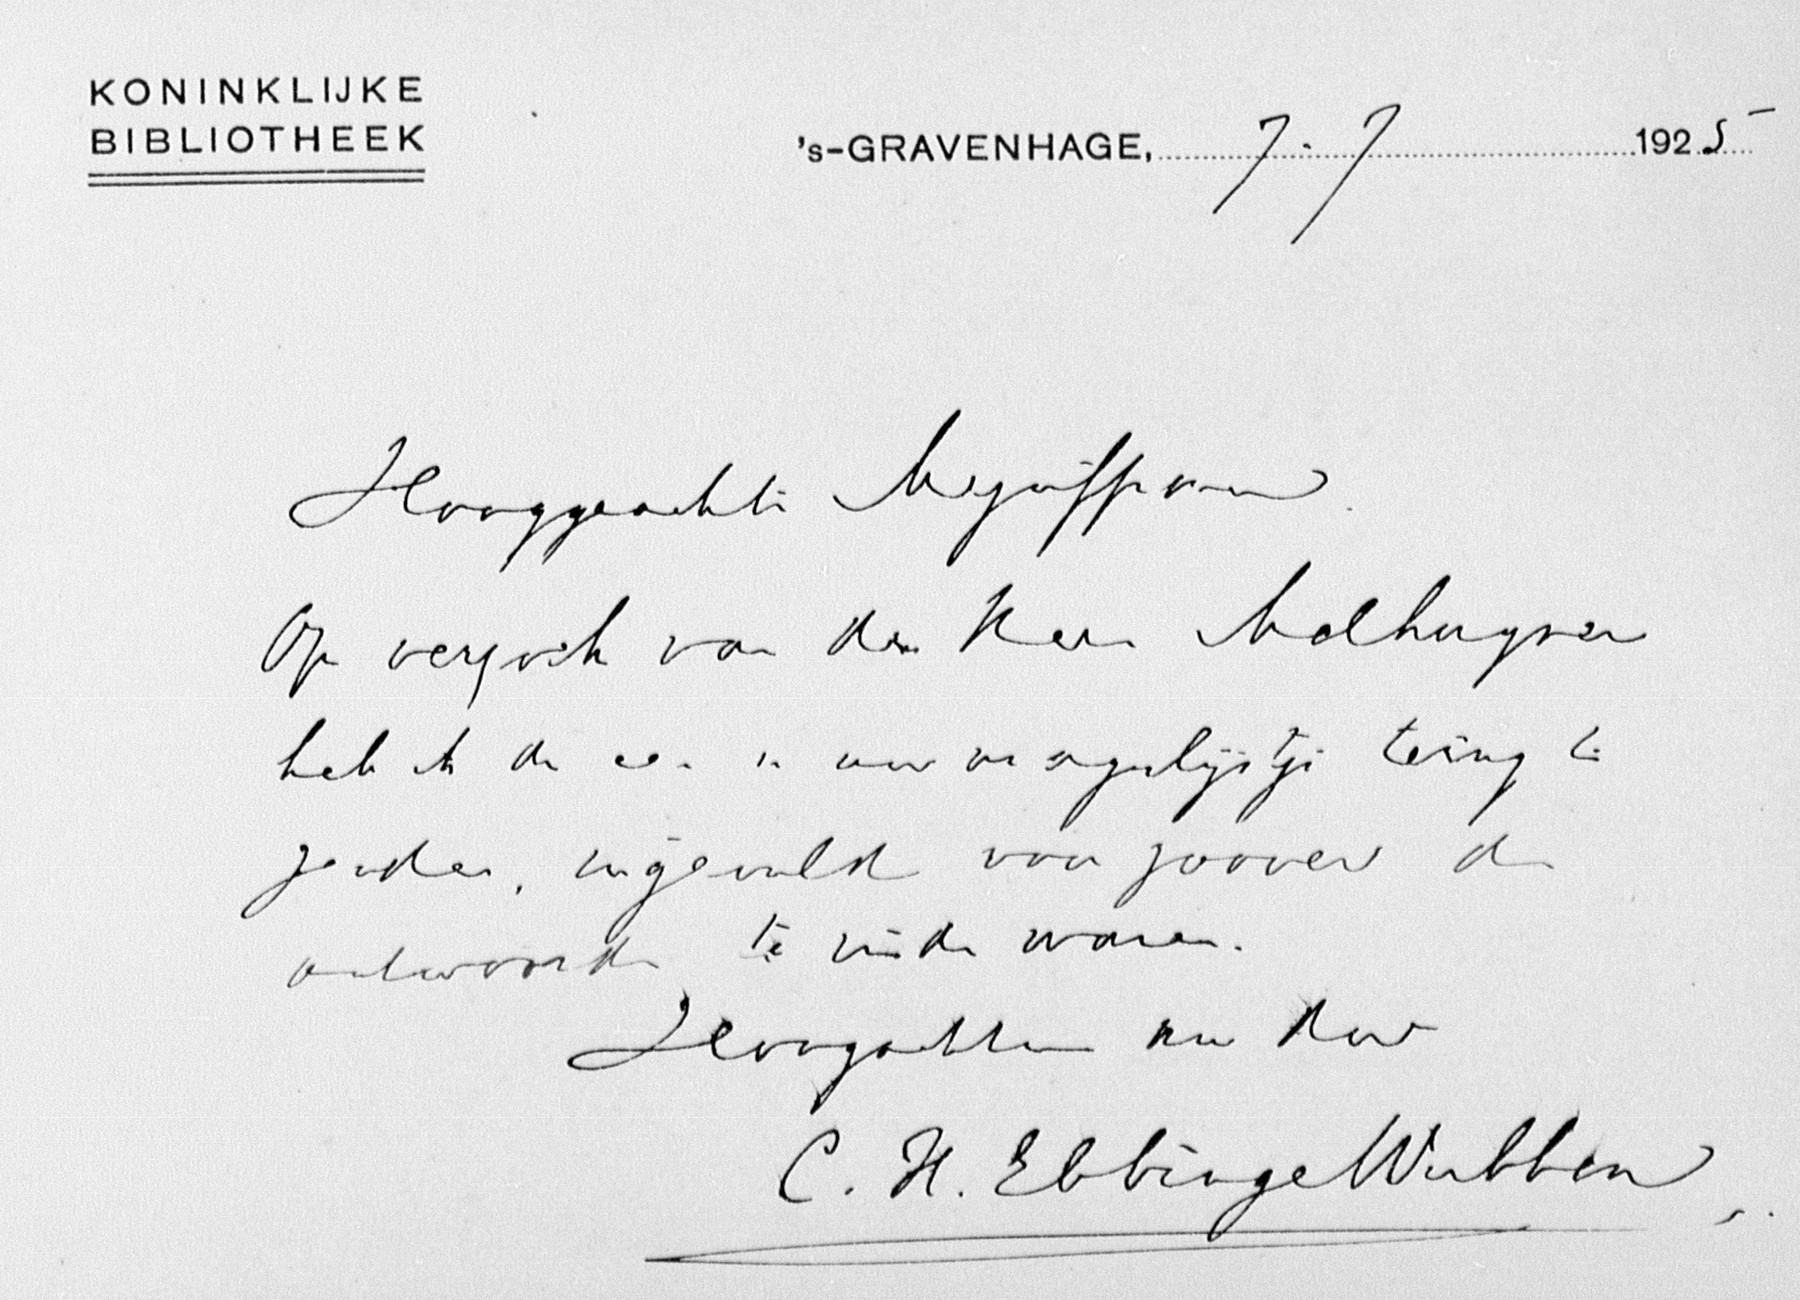 KONINKLIJKE
BIBLIOTHEEK
's-GRAVENHAGE, 7-7 1925
Hooggeachte Mejuffrouw
Op verzoek van den Heer Molhuysen
heb ik de eer u uw vragenlijstje terug te
zenden, ingevuld voor zoover de
antwoorden te vinden waren.
Hoogachtend uw dw
C. H. Ebbinge Wubben